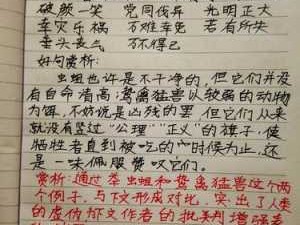 破颜一笑 党同伐异 光明正大
幸灾乐祸 万难幸免 若有所失
垂头丧气 万不得已
好句赏析:
虫蛆也许是不干净的,但它们并没
有自命清高;鸷禽猛兽以较弱的动物
为饵,不妨说是凶残的罢,但它们从来
就没有竖过“公理”“正义”的旗子,使
牺牲者直到被吃的时候为止,还
是一味佩服赞叹它们。
赏析:通过举虫蛆和鸷禽猛兽这两个
例子,与下文形成对比,突出了人类
的虚伪,
作者的批判,增强表